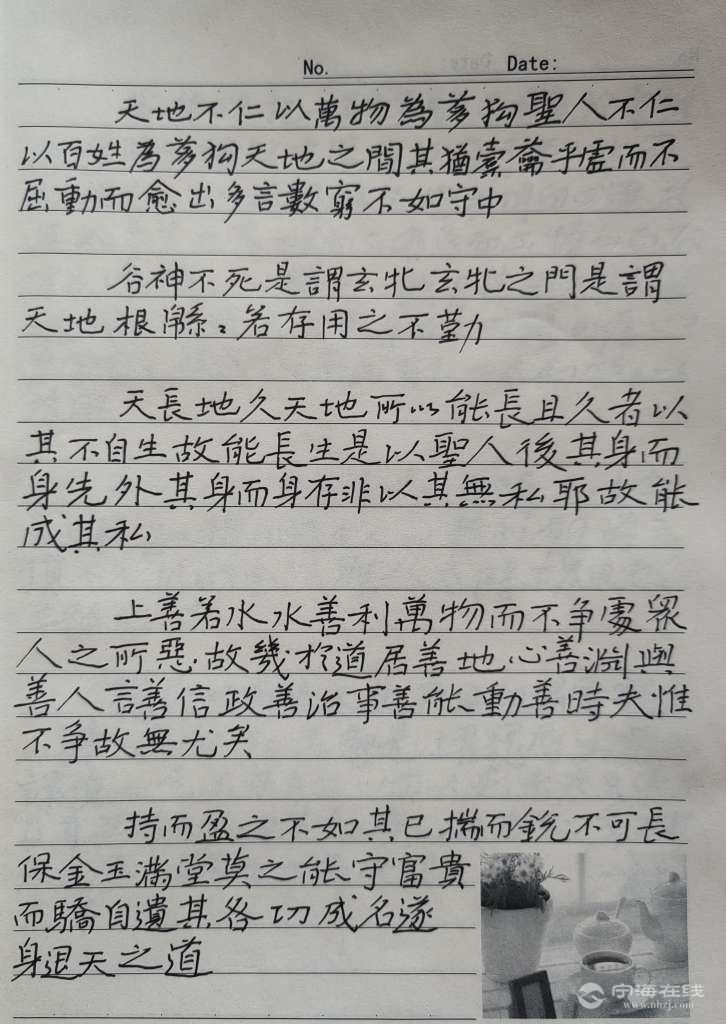 No. Date:
天地不仁以萬物為芻狗聖人不仁
以百姓為芻狗天地之間其猶橐籥乎虛而不
屈動而愈出多言數窮不如守中
谷神不死是謂玄牝玄牝之門是謂
天地根綿:若存用之不勤
天長地久天地所以能長且久者以
其不自生故能長生是以聖人後其身而
身先外其身而身存非以其無私耶故能
成其私
上善若水水善利萬物而不争處眾
人之所惡故幾於道居善地心善淵與
善人言善信政善治事善能動善時夫惟
不争故無尤矣
持而盈之不如其已揣而銳不可長
保金玉滿堂莫之能守富貴
而驕自遺其咎功成名遂
身退天之道
宁海在线
www.nhzj.com